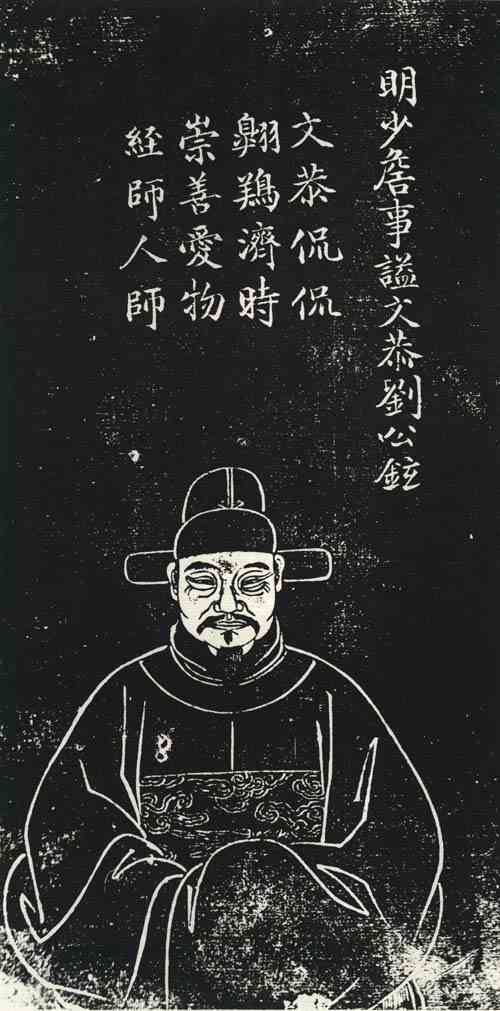 明少詹事謚文恭劉公鉉
文恭侃侃
濟時
崇善愛物
經師人師